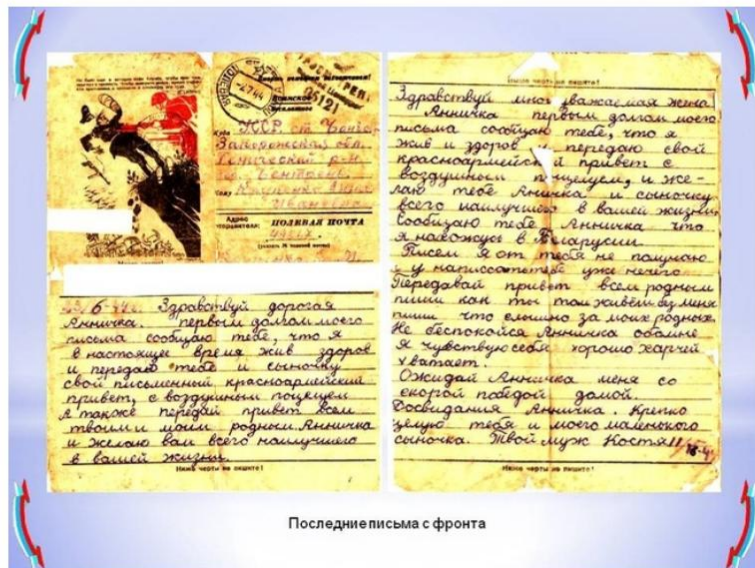 Куда УССР. ст. Чонгар
Запорожская обл.
Генический р-н
Кому
Ивановне
Адрес
отправителя: ПОЛЕВАЯ ПОЧТА
-2.7.44
25121
/6-44г. Здравствуй дорогая
Анничка. первым долгом моего
письма сообщаю тебе, что я
в настоящее время жив здоров
и передаю тебе и сыночку
свой письменный красноармейский
привет, с воздушным поцелуем
А также передай привет всем
твоим и моим родным. Анничка
и желаю вам всего наилучшего
в вашей жизни.
Ниже черты не пишите!
Ниже черты не пишите!
Здравствуй многоуважаемая жена
Анничка первым долгом моего
письма сообщаю тебе, что я
жив и здоров и передаю свой
красноармейский привет с
воздушным поцелуем, и же-
лаю тебе Анничка и сыночку
всего наилучшего в вашей жизни,
Сообщаю тебе Анничка что
я нахожусь в Беларусии.
Писем я от тебя не получаю
и написать тебе уже нечего
Передавай привет всем родным
пиши как ты там живёш без меня
пиши что слышно за моих родных.
Не беспокойся Анничка обомне
Я чувствую себя хорошо харчей
хватает.
Ожидай Анничка меня со
скорой победой домой.
Досвидания Анничка. Крепко
целую тебя и моего маленького
сыночка. Твой муж Костя!!
Ниже черты не пишите!
Последние письма с фронта